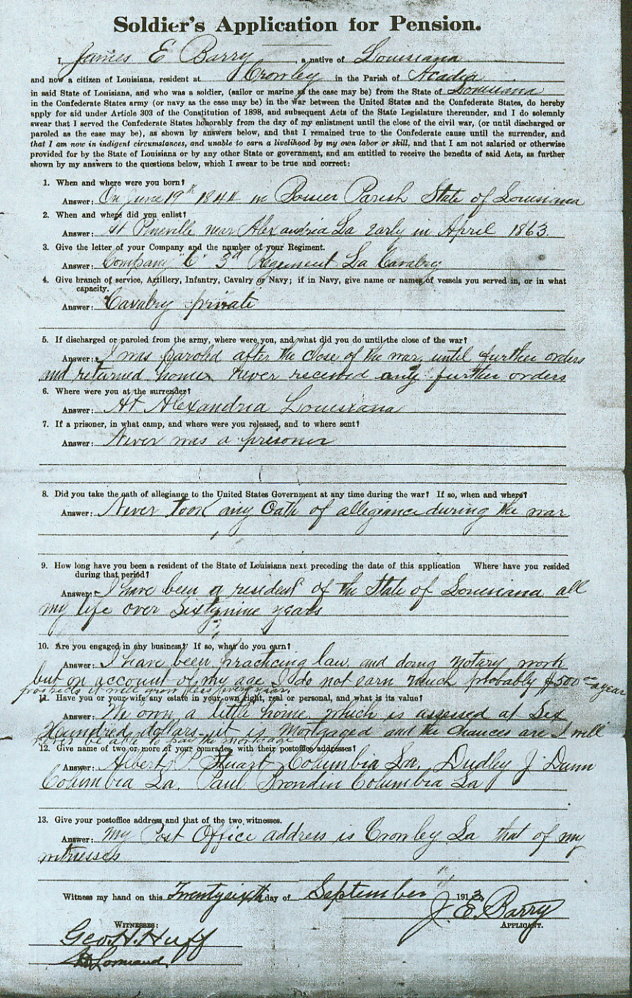 Soldier's Application for Pension.
I, James E Barry, a native of Louisiana
and now a citizen of Louisiana, resident at Crowley in the Parish of Acadia
in said State of Louisiana, and who was a soldier, (sailor or marine as the case may be) from the State of Louisiana
in the Confederate States army (or navy as the case may be) in the war between the United States and the Confederate States, do hereby
apply for aid under Article 303 of the Constitution of 1898, and subsequent Acts of the State Legislature thereunder, and I do solemnly
swear that I served the Confederate States honorably from the day of my enlistment until the close of the civil war, (or until discharged or
paroled as the case may be), as shown by answers below, and that I remained true to the Confederate cause until the surrender, and
that I am now in indigent circumstances, and unable to earn a livelihood by my own labor or skill, and that I am not salaried or otherwise
provided for by the State of Louisiana or by any other State or government, and am entitled to receive the benefits of said Acts, as further
shown by my answers to the questions below, which I swear to be true and correct:
1. When and where were you born?
Answer: On June 19th 1844 in Bossier Parish State of Louisiana
2. When and where did you enlist?
Answer: At Pineville near Alexandria La early in April 1863
3. Give the letter of your Company and the number of your Regiment.
Answer: Company "C" 3d Regiment La Cavalry
4. Give branch of service, Artillery, Infantry, Cavalry or Navy; if in Navy, give name or names of vessels you served in, or in what
capacity.
Answer: Cavalry private
5. If discharged or paroled from the army, where were you, and what did you do until the close of the war?
Answer: I was paroled after the close of the war, until further orders
and returned home. Never received any further orders
6. Where were you at the surrender?
Answer: At Alexandria Louisiana
7. If a prisoner, in what camp, and where were you released, and to where sent?
Answer: Never was a prisoner
8. Did you take the oath of allegiance to the United States Government at any time during the war? If so, when and where?
Answer: Never took any Oath of allegiance during the war
9. How long have you been a resident of the State of Louisiana next preceding the date of this application Where have you resided
during that period?
Answer: I have been a resident of the State of Louisiana all
my life over sixty nine years
10. Are you engaged in any business? If so, what do you earn?
Answer: I have been practicing law, and doing notary work
but on account of my age I do not earn much probably $500 a year
11. Have you or your wife any estate in your own right, real or personal, and what is its value?
Answer: We own a little home which is assessed at Six
Hundred dollars it is Mortgaged and the chances are I will
12. Give name of two or more of your comrades, with their postoffice addresses?
Answer: Albert P. Stuart Columbia La, Dudley J. Dunn
Columbia La. Paul Columbia La
13. Give your postoffice address and that of the two witnesses.
Answer: My Post Office address is Crowley La that of my
witnesses
Witness my hand on this Twentysixth day of September 1913
J. E. Barry
APPLICANT.
WITNESSES:
Geo. H. Huff